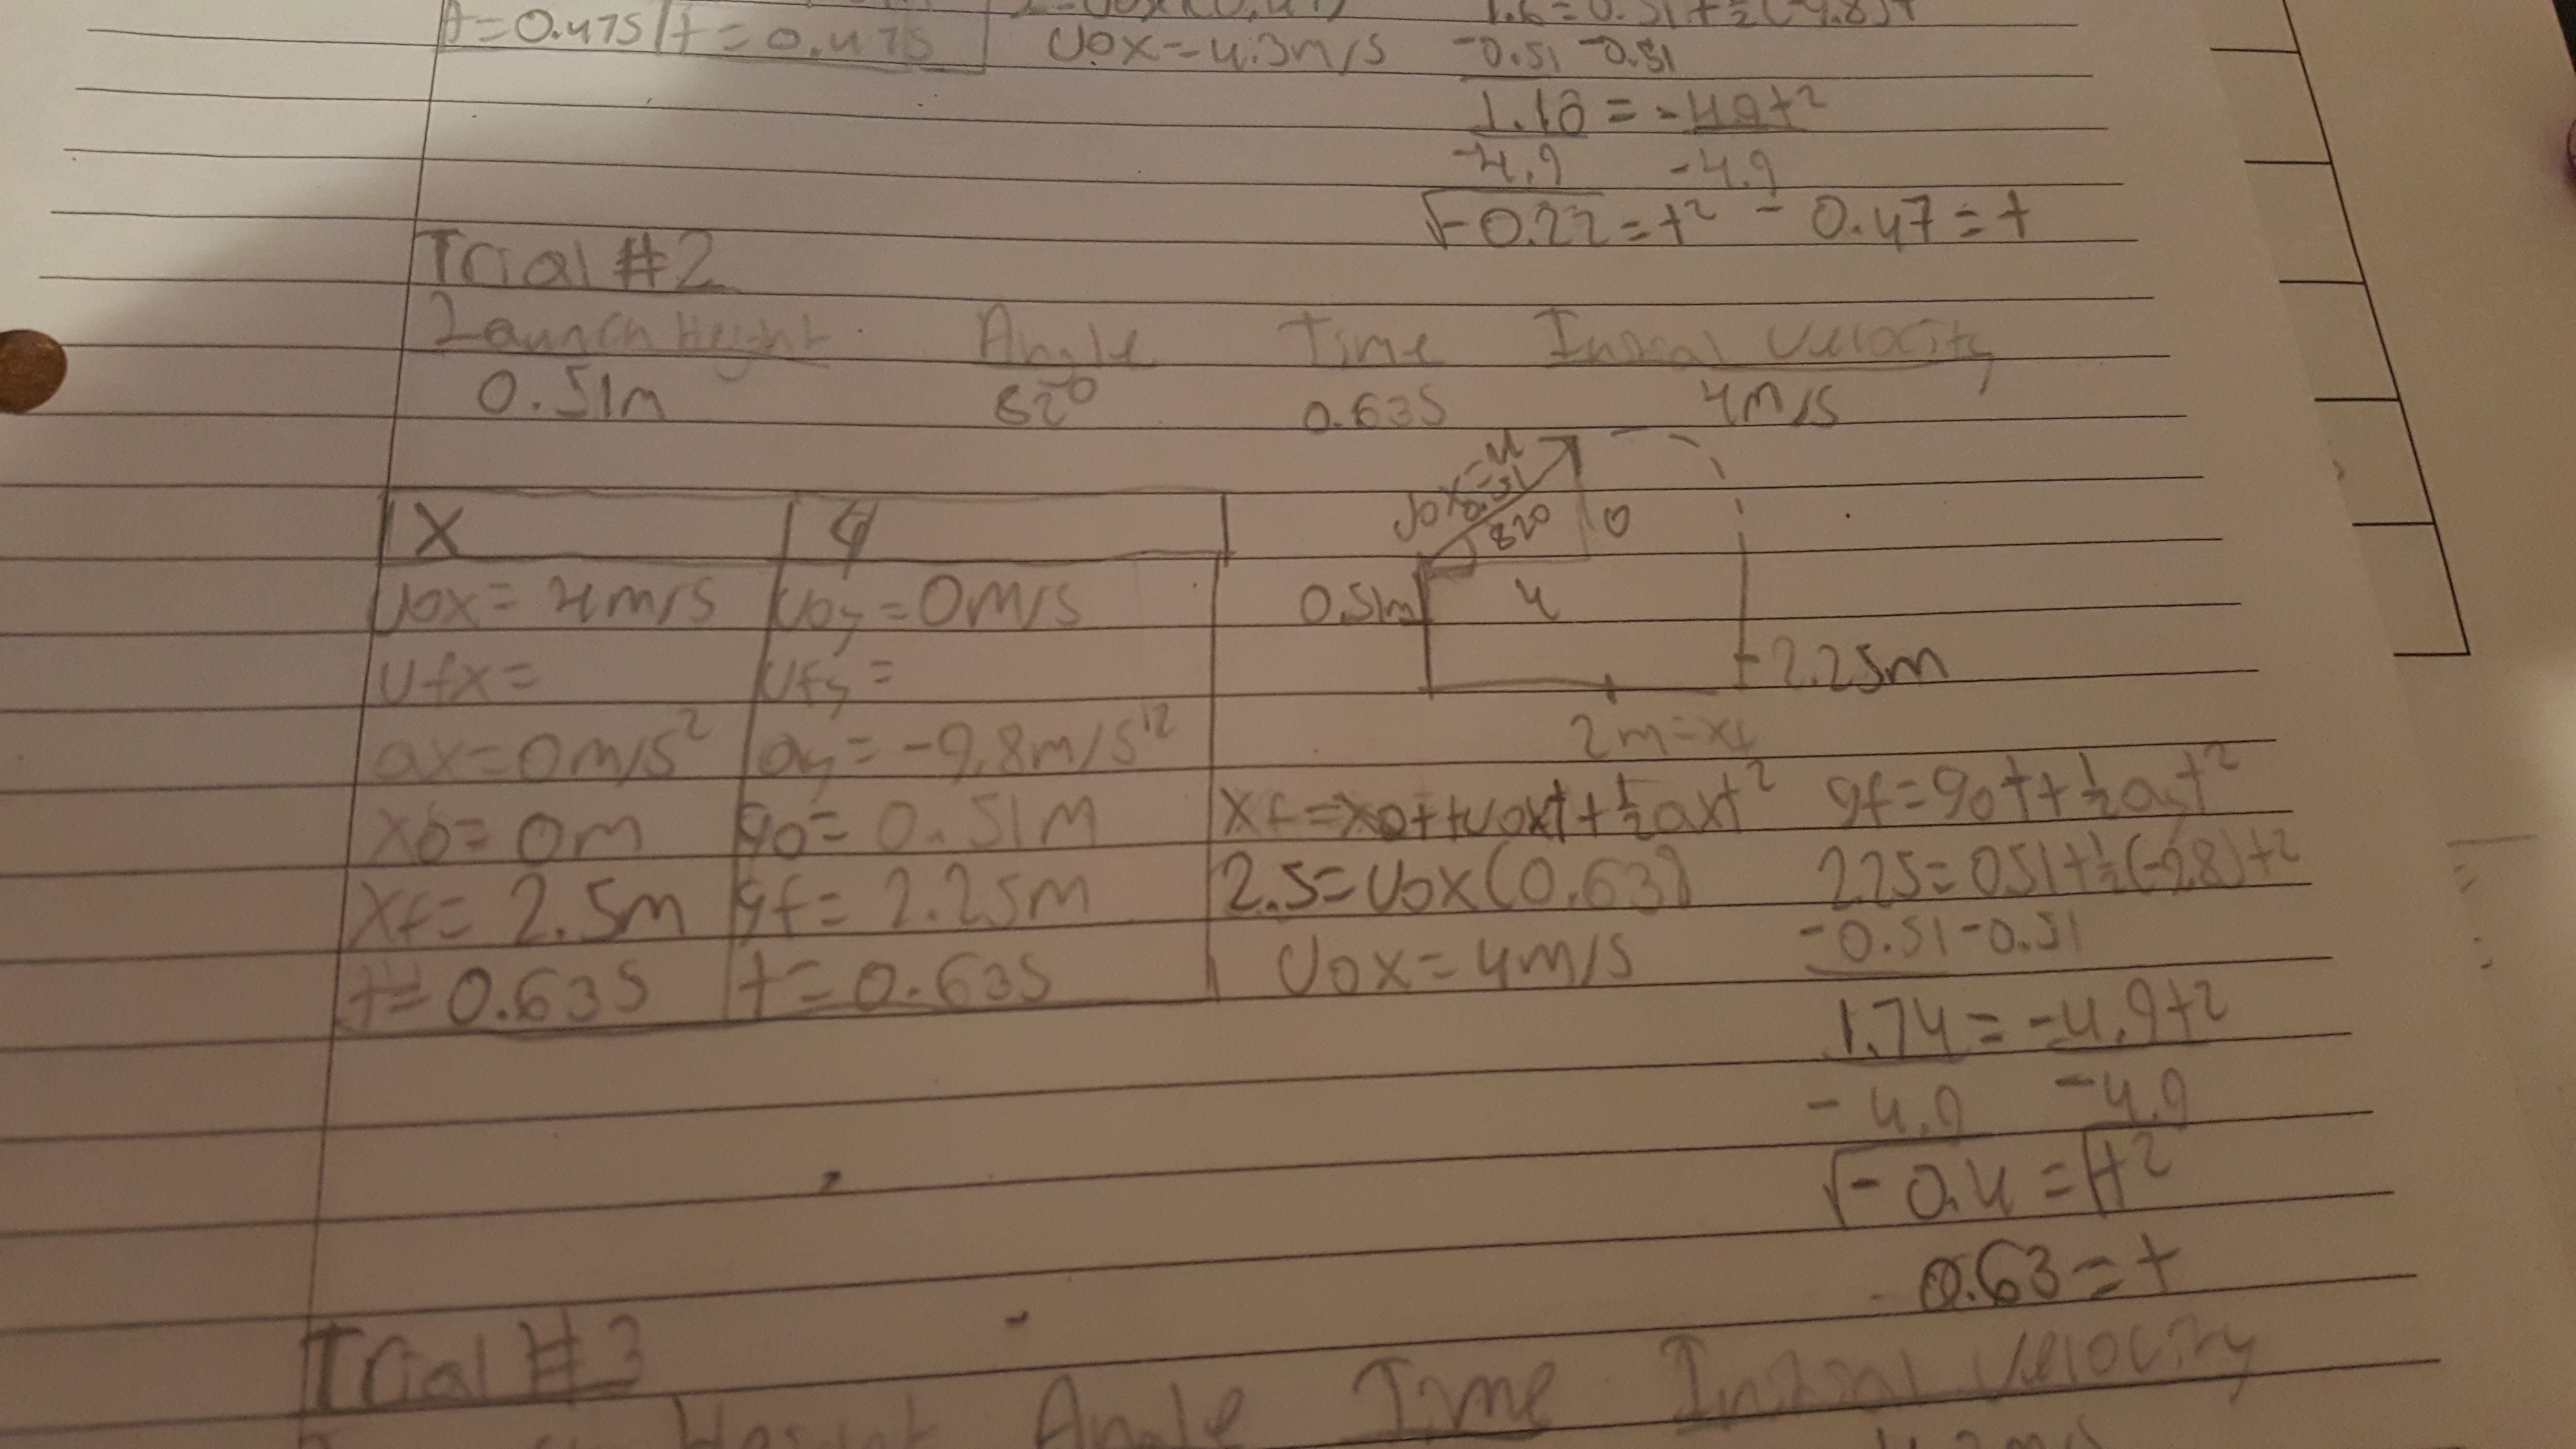 t=0.47s t=0.47s
Vox=4.3m/s
-0.51 -0.51
1.10 = -4.9t²
-4.9 -4.9
√-0.22 = t² - 0.47=t
Trial #2
Launch Height Angle Time Inital Velocity
0.51m 82° 0.63s 4m/s
X y
Vox= 4m/s Voy=0m/s
Vfx= Vfy=
ax=0m/s² ay= -9.8m/s²
xo= 0m yo= 0.51m
Xf= 2.5m yf= 2.25m
t= 0.63s t=0.63s
82° 0
0.51m 4
2.25m
2m=xf
Xf=xo+voxt+½axt² yf=yot+½ayt²
2.5=Vox(0.63) 2.25=0.51+½(-9.8)t2
Vox=4m/s -0.51-0.51
1.74=-4.9t2
-4.9 -4.9
√-0.4=√t2
0.63=t
Trial #3
Height Angle Time Inital Velocity